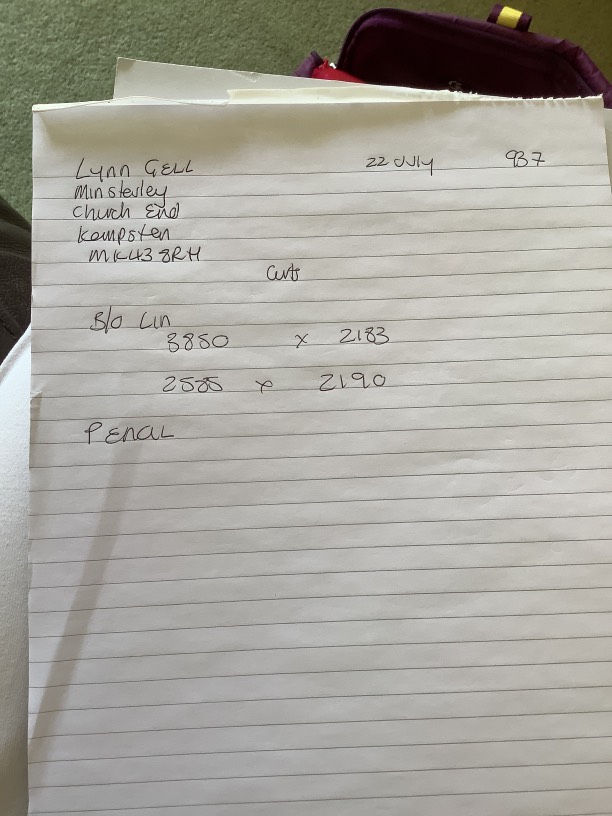 Lynn GELL 22 JULY 937
Minsterley
Church End
Kempsten
MK43 8RH
Curts
B/O Lin
3850 x 2183
2585 x 2190
PENCIL